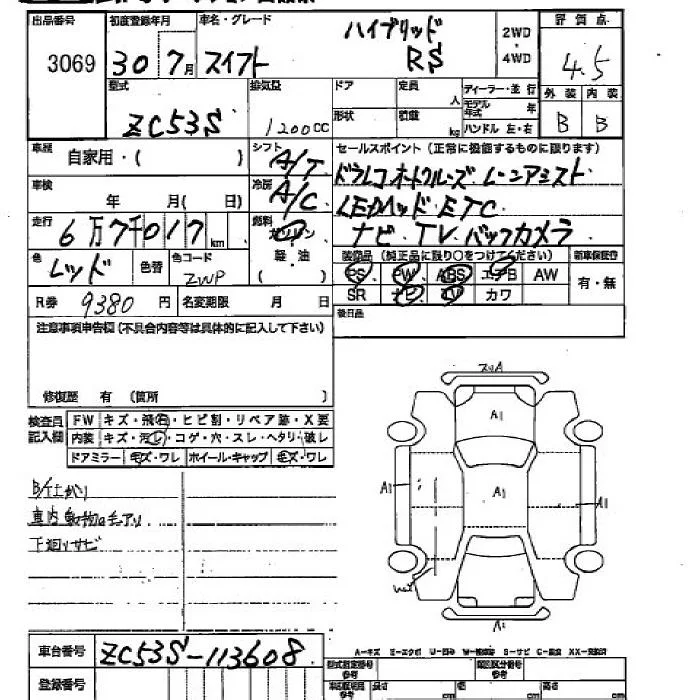 出品番号 初度登録年月 車名・グレード 評価点
3069 30 7月 スイフト ハイブリッド RS 2WD・4WD 4.5
型式 排気量 ドア 定員 人 ディーラー・並行 外装 内装
ZC53S 1200cc 形状 積載 kg モデル年式 年 ハンドル 左・右 B B
車歴 自家用・( ) シフト A/T セールスポイント(正常に機能するものに限ります)
車検 年 月( 日) 冷房 A/C ドラレコ オートクルーズ レーンアシスト
LEDヘッド・ETC
走行 6万7千017km 燃料 ガソリン ナビ・TV・バックカメラ
軽・油 ( )
色 レッド 色替 色コード ZWP
装備品(純正品に限り○をつけてください) 新車保証書
PS PW ABS エアB AW 有・無
SR ナビ TV カワ
R券 9380円 名変期限 月 日 後日品
注意事項申告欄(不具合内容等は具体的に記入して下さい)
修復歴 有 (箇所 )
検査員記入欄 FW キズ・飛石・ヒビ割・リペア跡・X要
内装 キズ・汚レ・コゲ・穴・スレ・ヘタリ・破レ
ドアミラー キズ・ワレ ホイール・キャップ キズ・ワレ
車内動物の毛アリ
下廻リサビ
A1
A1 A1 A1
車台番号 ZC53S-113608
登録番号
A-キズ E-エクボ U-凹み S-サビ C-腐食 XX-交換済
型式指定番号 参考 類別区分番号 参考
長さ cm 幅 cm 高さ cm